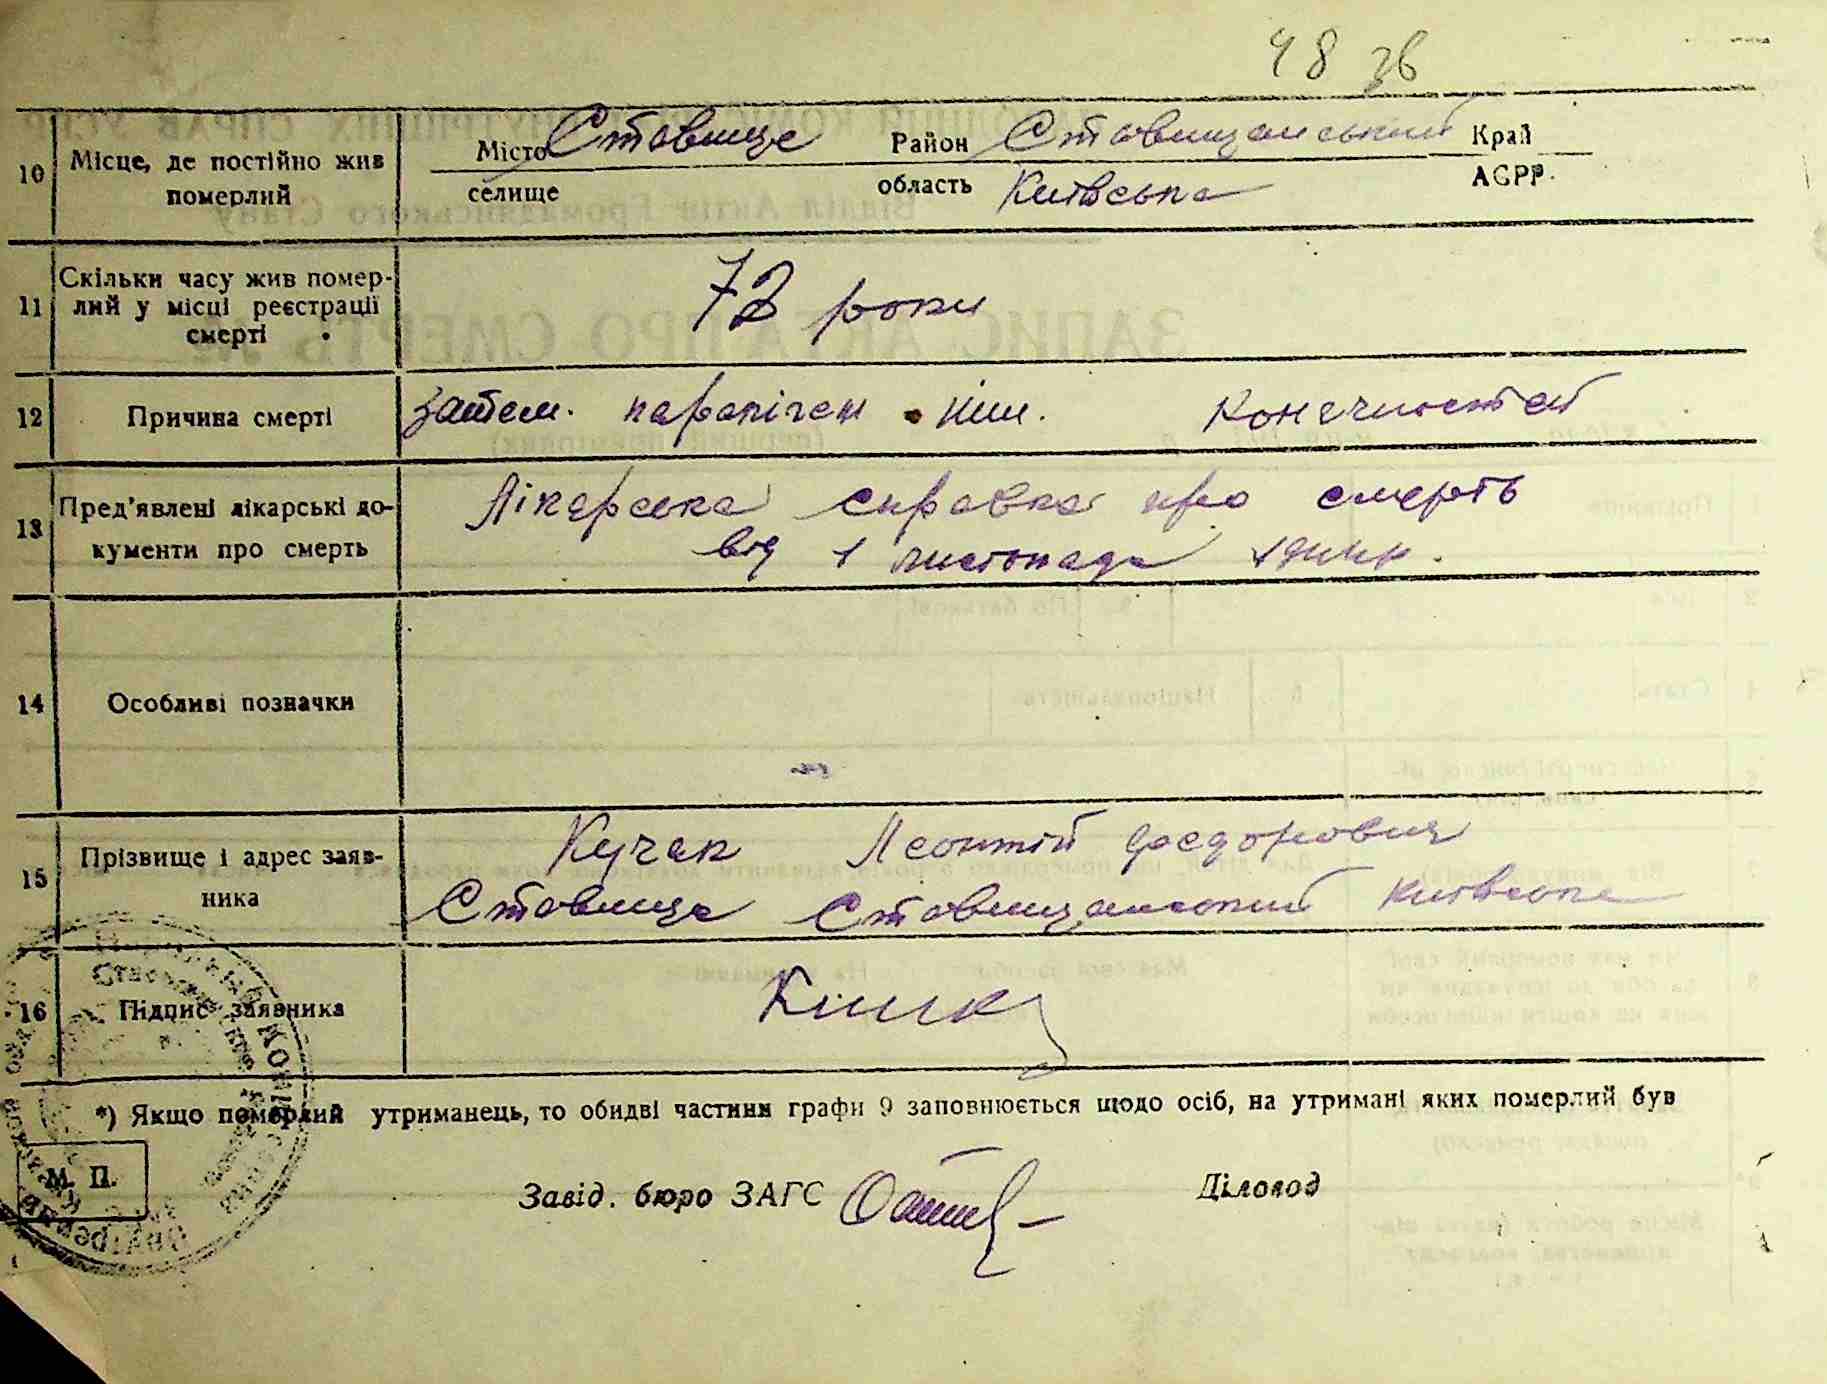 48 зв
10 Місце, де постійно жив померлий
Місто Ставище Район Ставищанський Край
селище область Київська АСРР.
11 Скільки часу жив помер-
лий у місці реєстрації
смерті
72 роки
12 Причина смерті
параліч конечностей
13 Пред'явлені лікарські до-
кументи про смерть
Лікарська справка про смерть
від 1 листопада
14 Особливі позначки
15 Прізвище і адрес заяв-
ника
Кучак Леонтій Федорович
Ставище Ставищанський Київська
16 Підпис заявника
*) Якщо померлий утриманець, то обидві частини графи 9 заповнюється щодо осіб, на утримані яких померлий був
М. П.
Завід. бюро ЗАГС Діловод